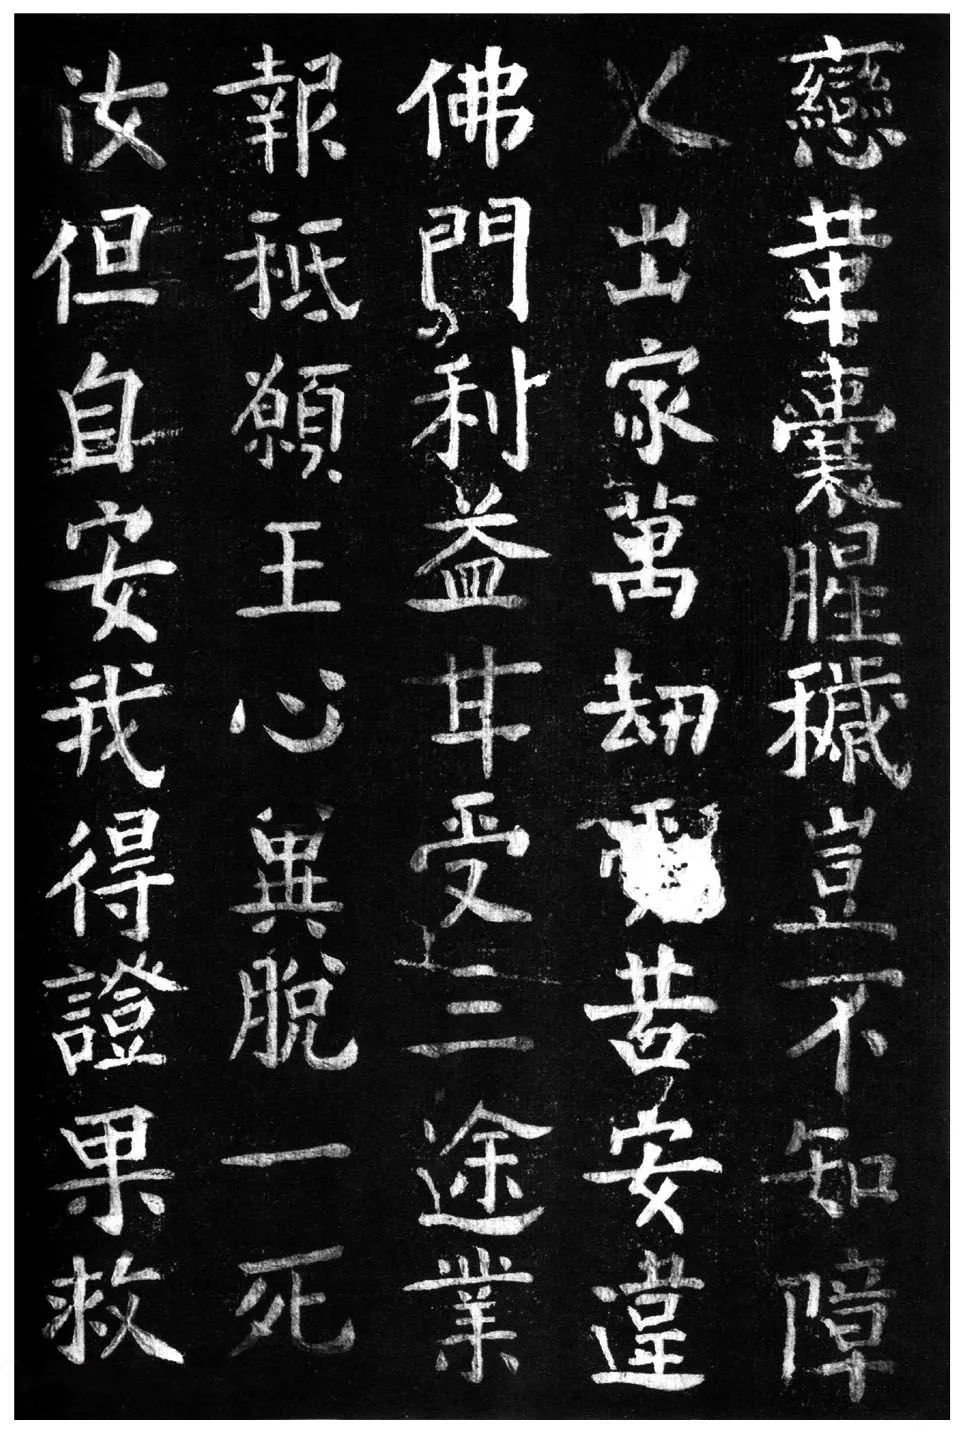 戀革囊腥穢豈不知障
人出家萬劫受苦安違
佛門利益甘受三途業
報祗願王心異脫一死
汝但自安我得證果救